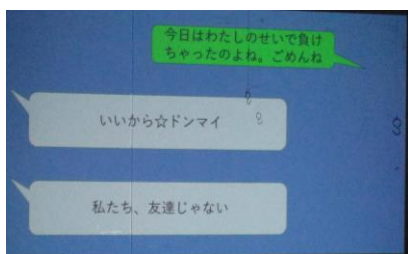 今日はわたしのせいで負け
ちゃったのよね。ごめんね
いいから☆ドンマイ
私たち、友達じゃない